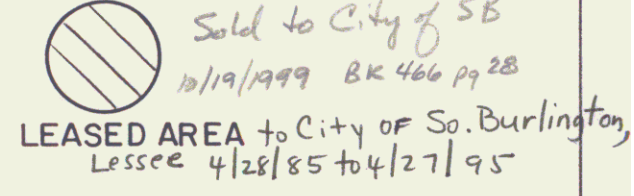 Sold to City of SB
10/19/1999 BK 466 pg 28
LEASED AREA to City OF So. Burlington,
Lessee 4/28/85 to 4/27/95